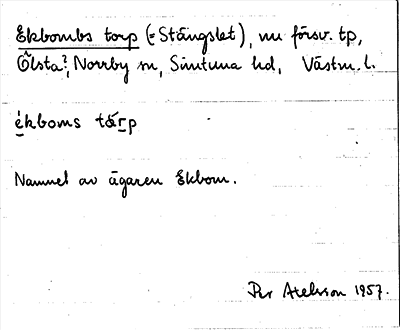 Ekbombs torp (= Stängslet), nu försv. tp,
Ölsta?, Norrby sn, Simtuna hd, Västm. l.
ékboms tårp
Namnet av ägaren Ekbom.
Per Axelsson 1957.